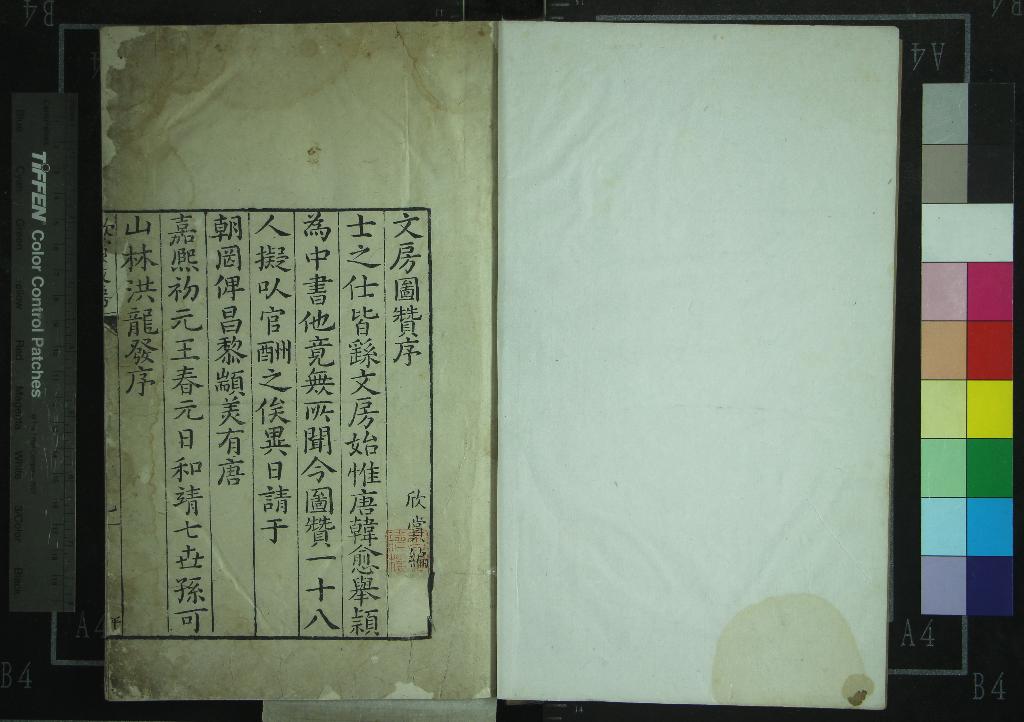 文房圖贊序
欣賞編
士之仕皆繇文房始惟唐韓愈舉穎
為中書他竟無所聞今圖贊一十八
人擬㕥官酬之俟異日請于
朝罔俾昌黎顓美有唐
嘉熈初元王春元日和靖七世孫可
山林洪龍發序
TIFFEN Color Control Patches
Blue Cyan Green Yellow Red Magenta White 3/Color Black
B4
A4
A4
B4
B4
A4